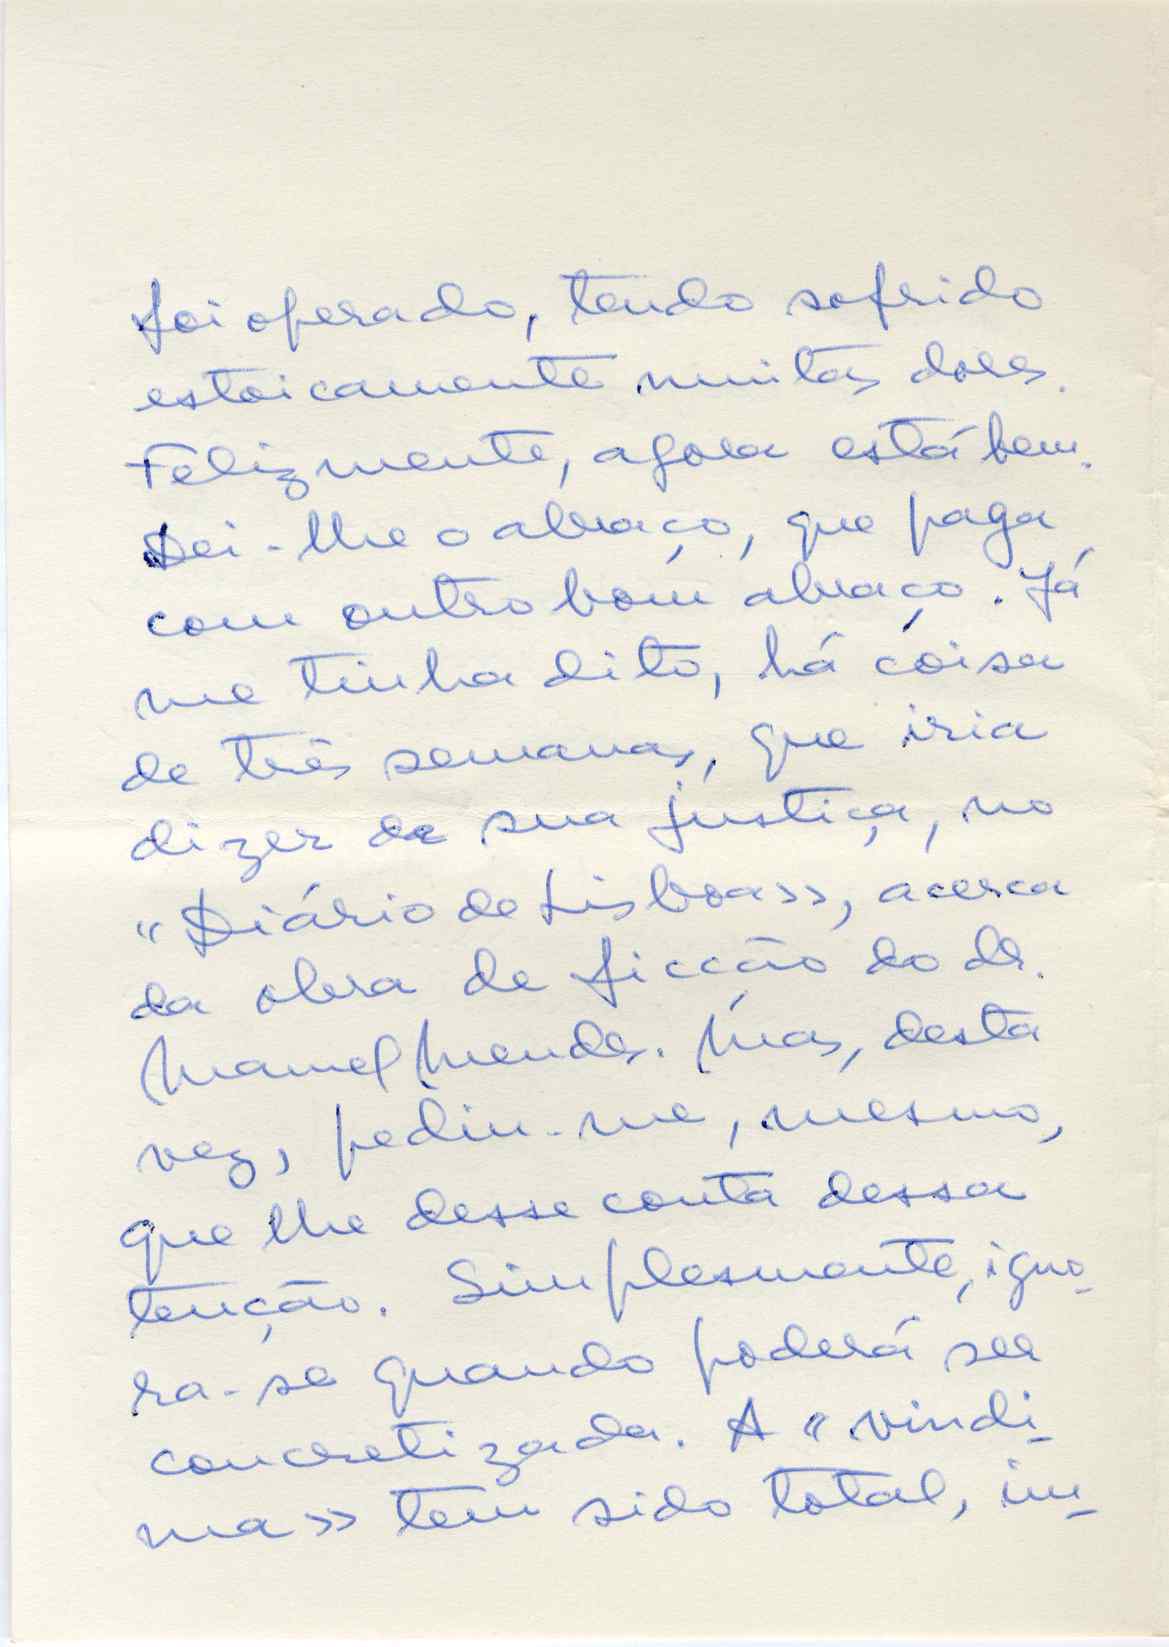 foi operado, tendo sofrido
estoicamente muitas dores.
Felizmente, agora está bem.
Dei-lhe o abraço, que paga
com outro bom abraço. Já
me tinha dito, há coisa
de três semanas, que iria
dizer de sua justiça, no
«Diário de Lisboa», acerca
da obra de ficção do dr.
Manuel Mendes. Mas, desta
vez, pediu-me, mesmo,
que lhe desse conta dessa
tenção. Simplesmente, igno-
ra-se quando poderá ser
concretizada. A «vindi-
ma» tem sido total, im-